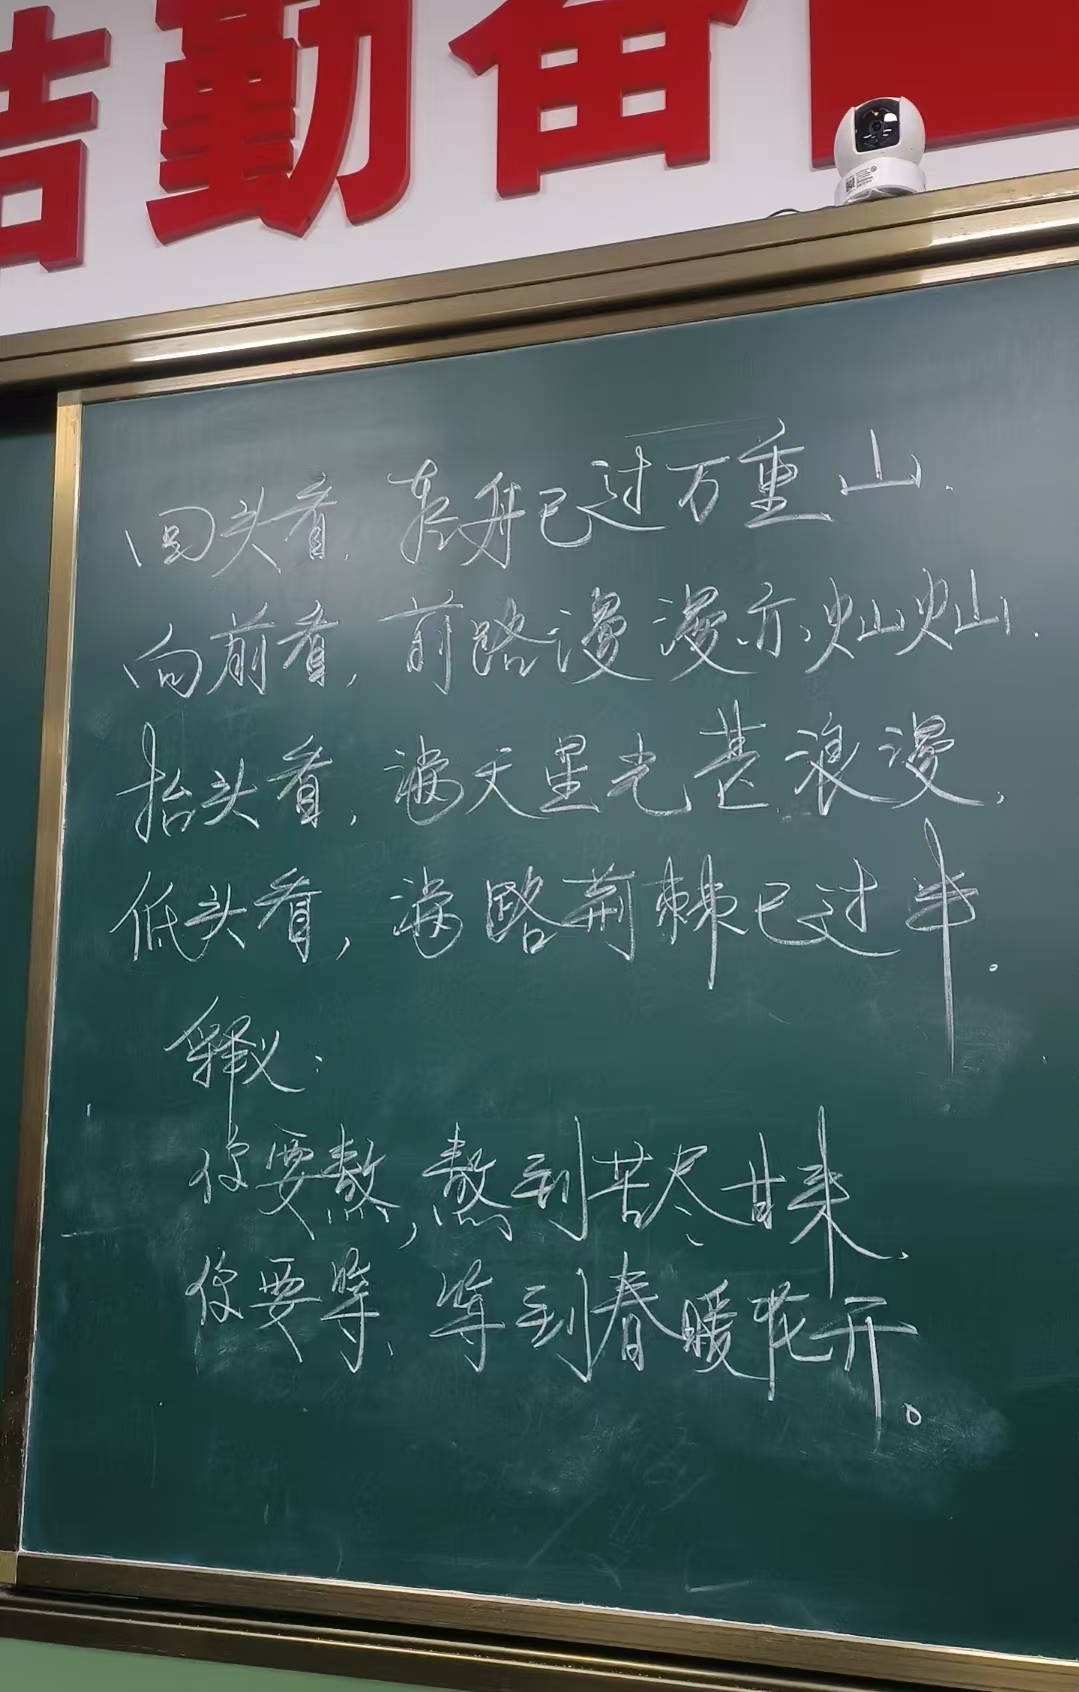 结勤奋
回头看，轻舟已过万重山．
向前看，前路漫漫亦灿灿．
抬头看，满天星光甚浪漫，
低头看，满路荆棘已过半．
释义：
你要熬，熬到苦尽甘来，
你要等，等到春暖花开。